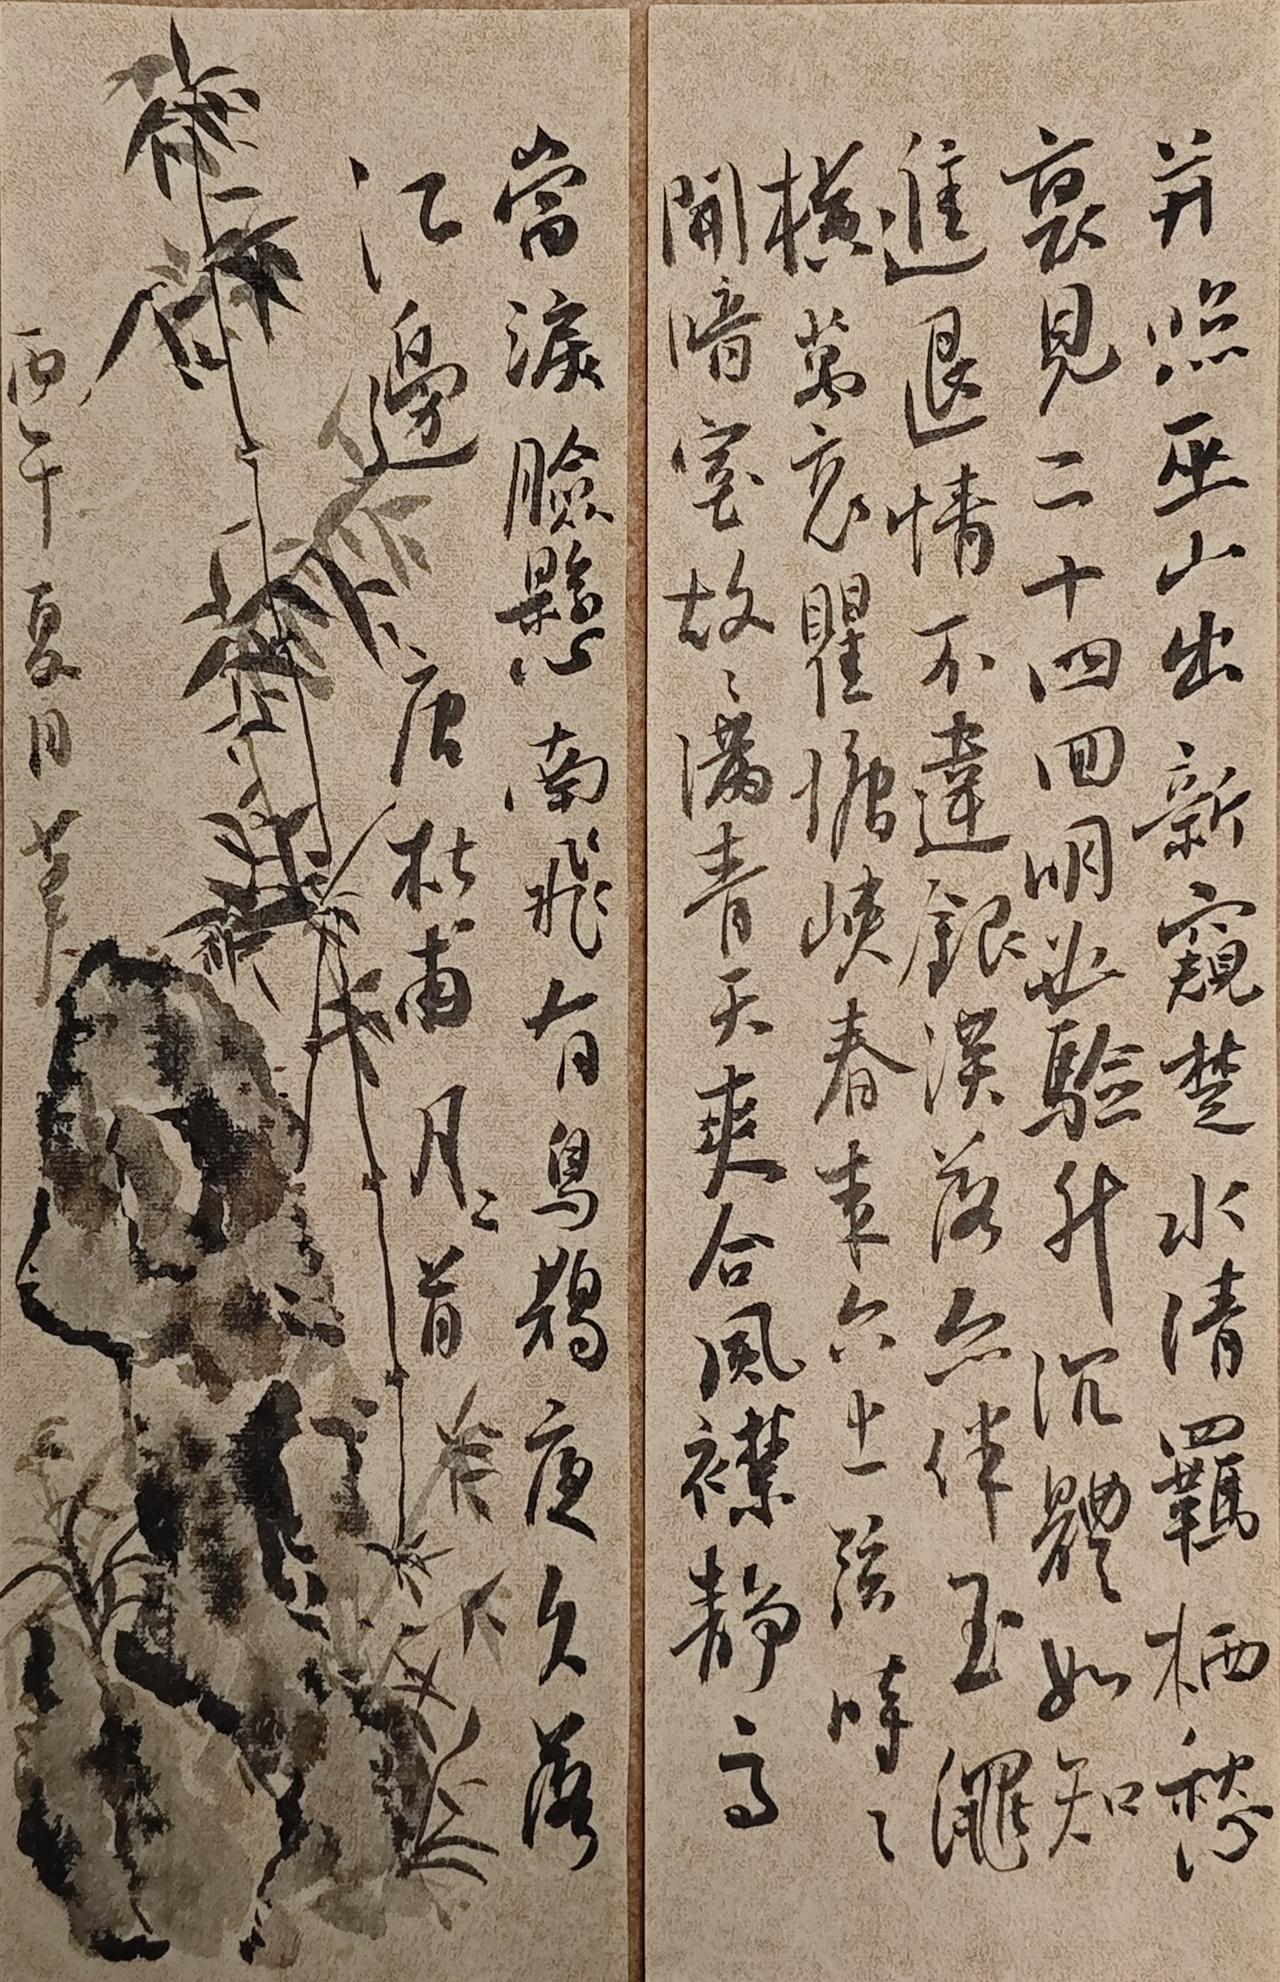 并照巫山出新窺楚水清羈栖愁
裏見二十四回明必驗升沉體如知
進退情不違銀漢落亦伴玉繩
橫萬里瞿塘峽春來六上弦時〻
開暗室故〻滿青天爽合風襟靜高
當淚臉懸南飛有烏鵲夜久落
江邊
唐杜甫月二首
丙午夏月